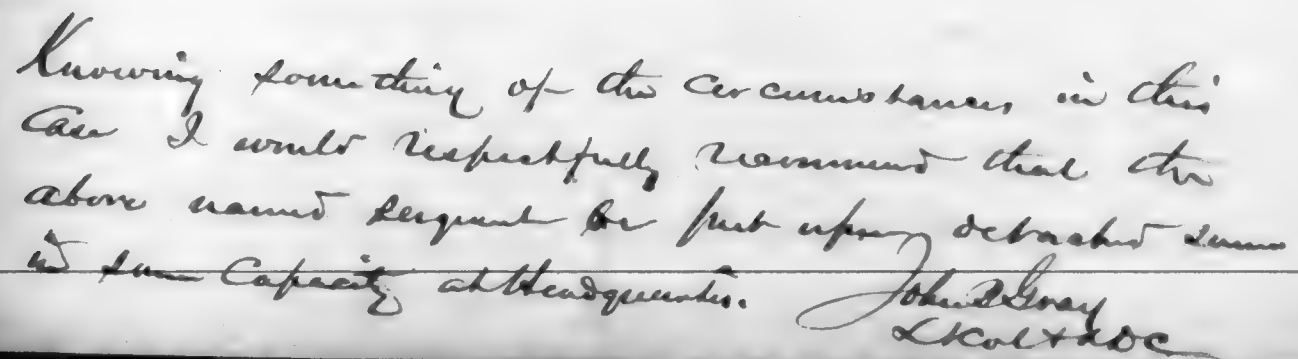 Knowing something of the circumstances in this
Case I would respectfully recommend that the
above named sergeant be put upon detached service
in some Capacity at Headquarters.
John B Gray
Lt Col & ADC